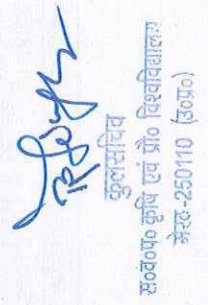 कुलसचिव
स०व०प० कृषि एवं प्रौ० विश्वविद्यालय
मेरठ-250110 (उ०प्र०)